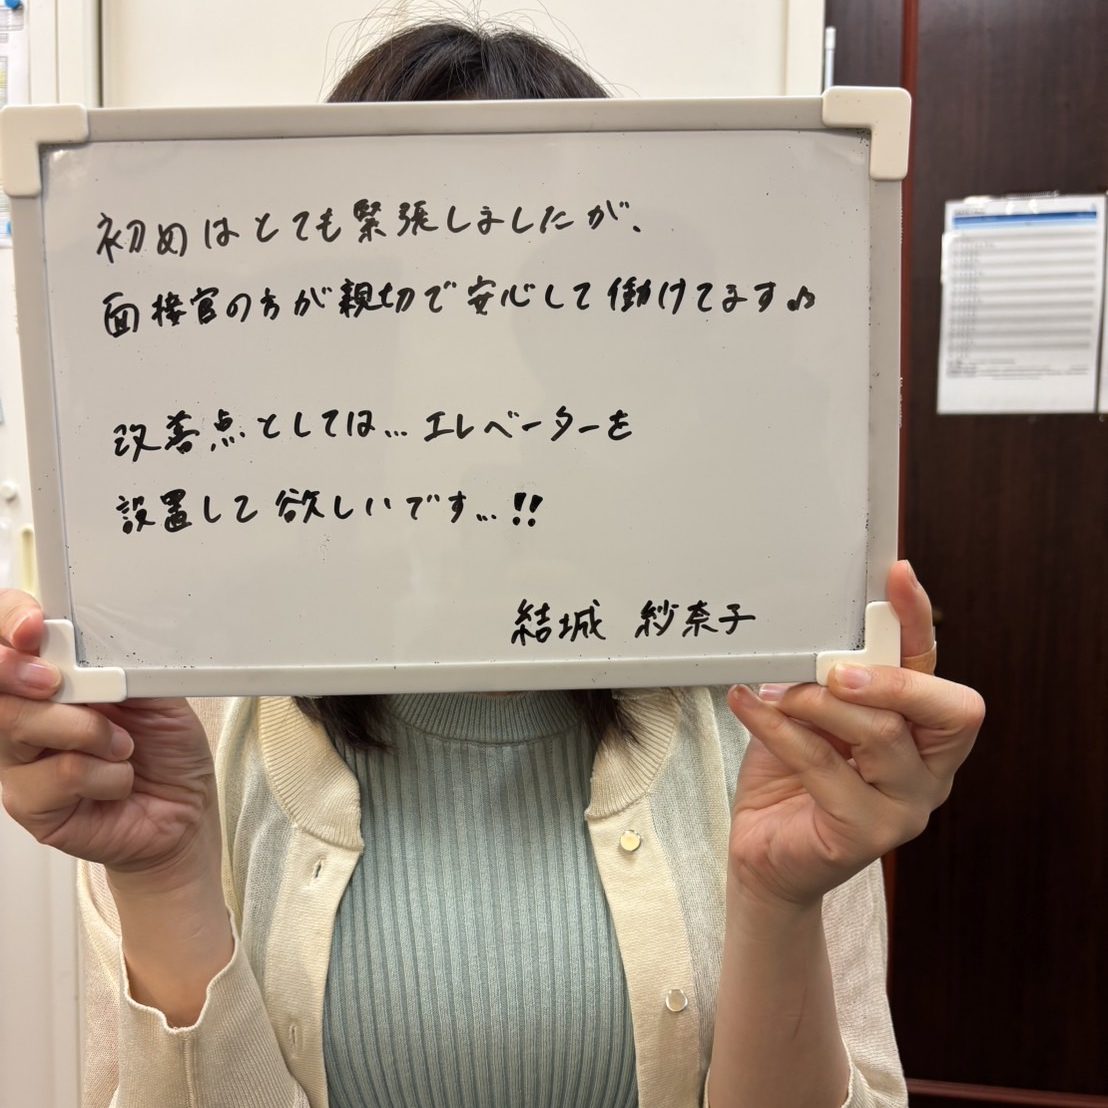 初めはとても緊張しましたが、
面接官の方が親切で安心して働けてます♪
改善点としては…エレベーターを
設置して欲しいです…!!
結城 紗奈子